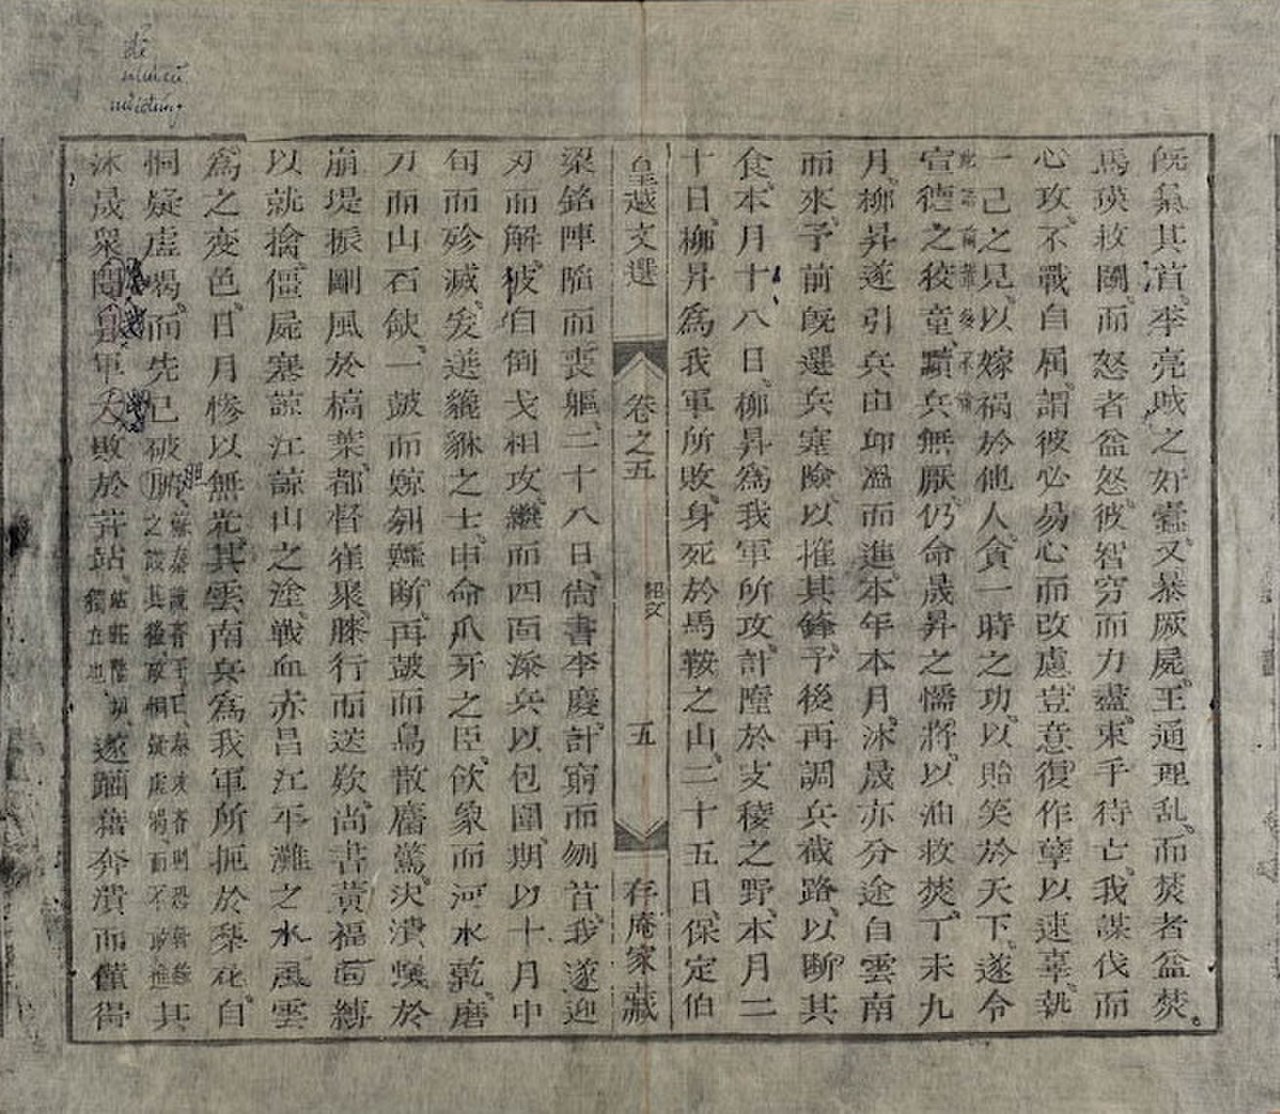 既梟其首李亮戕之奸蠹又暴厥屍王通理乱而焚者益焚
馬瑛救鬪而怒者益怒彼智穷而力盡束手待亡我謀伐而
心攻不戰自屈謂彼必易心而改慮豈意復作孽以速辜執
一己之見以嫁禍於他人貪一時之功以貽笑於天下遂令
宣德之狡童黷兵無厭仍命晟昇之懦將以油救焚丁未九
月柳昇遂引兵由邱溫而進本年本月沐晟亦分途自雲南
而來予前既選兵塞險以摧其鋒予後再調兵截路以断其
食本月十八日柳昇為我軍所攻計墮於支稜之野本月二
十日柳昇為我軍所敗身死於馬鞍之山二十五日保定伯
皇越文選 卷之五 詔文 五 存庵家藏
梁銘陣陷而喪軀二十八日尚書李慶計窮而刎首我遂迎
刃而解彼自倒戈相攻繼而四面添兵以包圍期以十月中
旬而殄滅爰選貔貅之士申命爪牙之臣飲象而河水乾磨
刀而山石缺一鼓而鯨刳鱷断再鼓而鳥散麕驚決潰蟻於
崩堤振剛風於槁葉都督崔聚膝行而送欵尚書黃福面縛
以就擒僵屍塞諒江諒山之塗戰血赤昌江平灘之水風雲
為之变色日月慘以無光其雲南兵為我軍所扼於梨花自
恫疑虛喝而先已破腑
胆
蘇秦說齊王曰秦攻齊則恐韓魏
之議其後故恫疑虛喝而不敢進
其
沐晟衆聞昇軍大敗於芹站
獨立也
遂躪藉奔潰而僅得
để